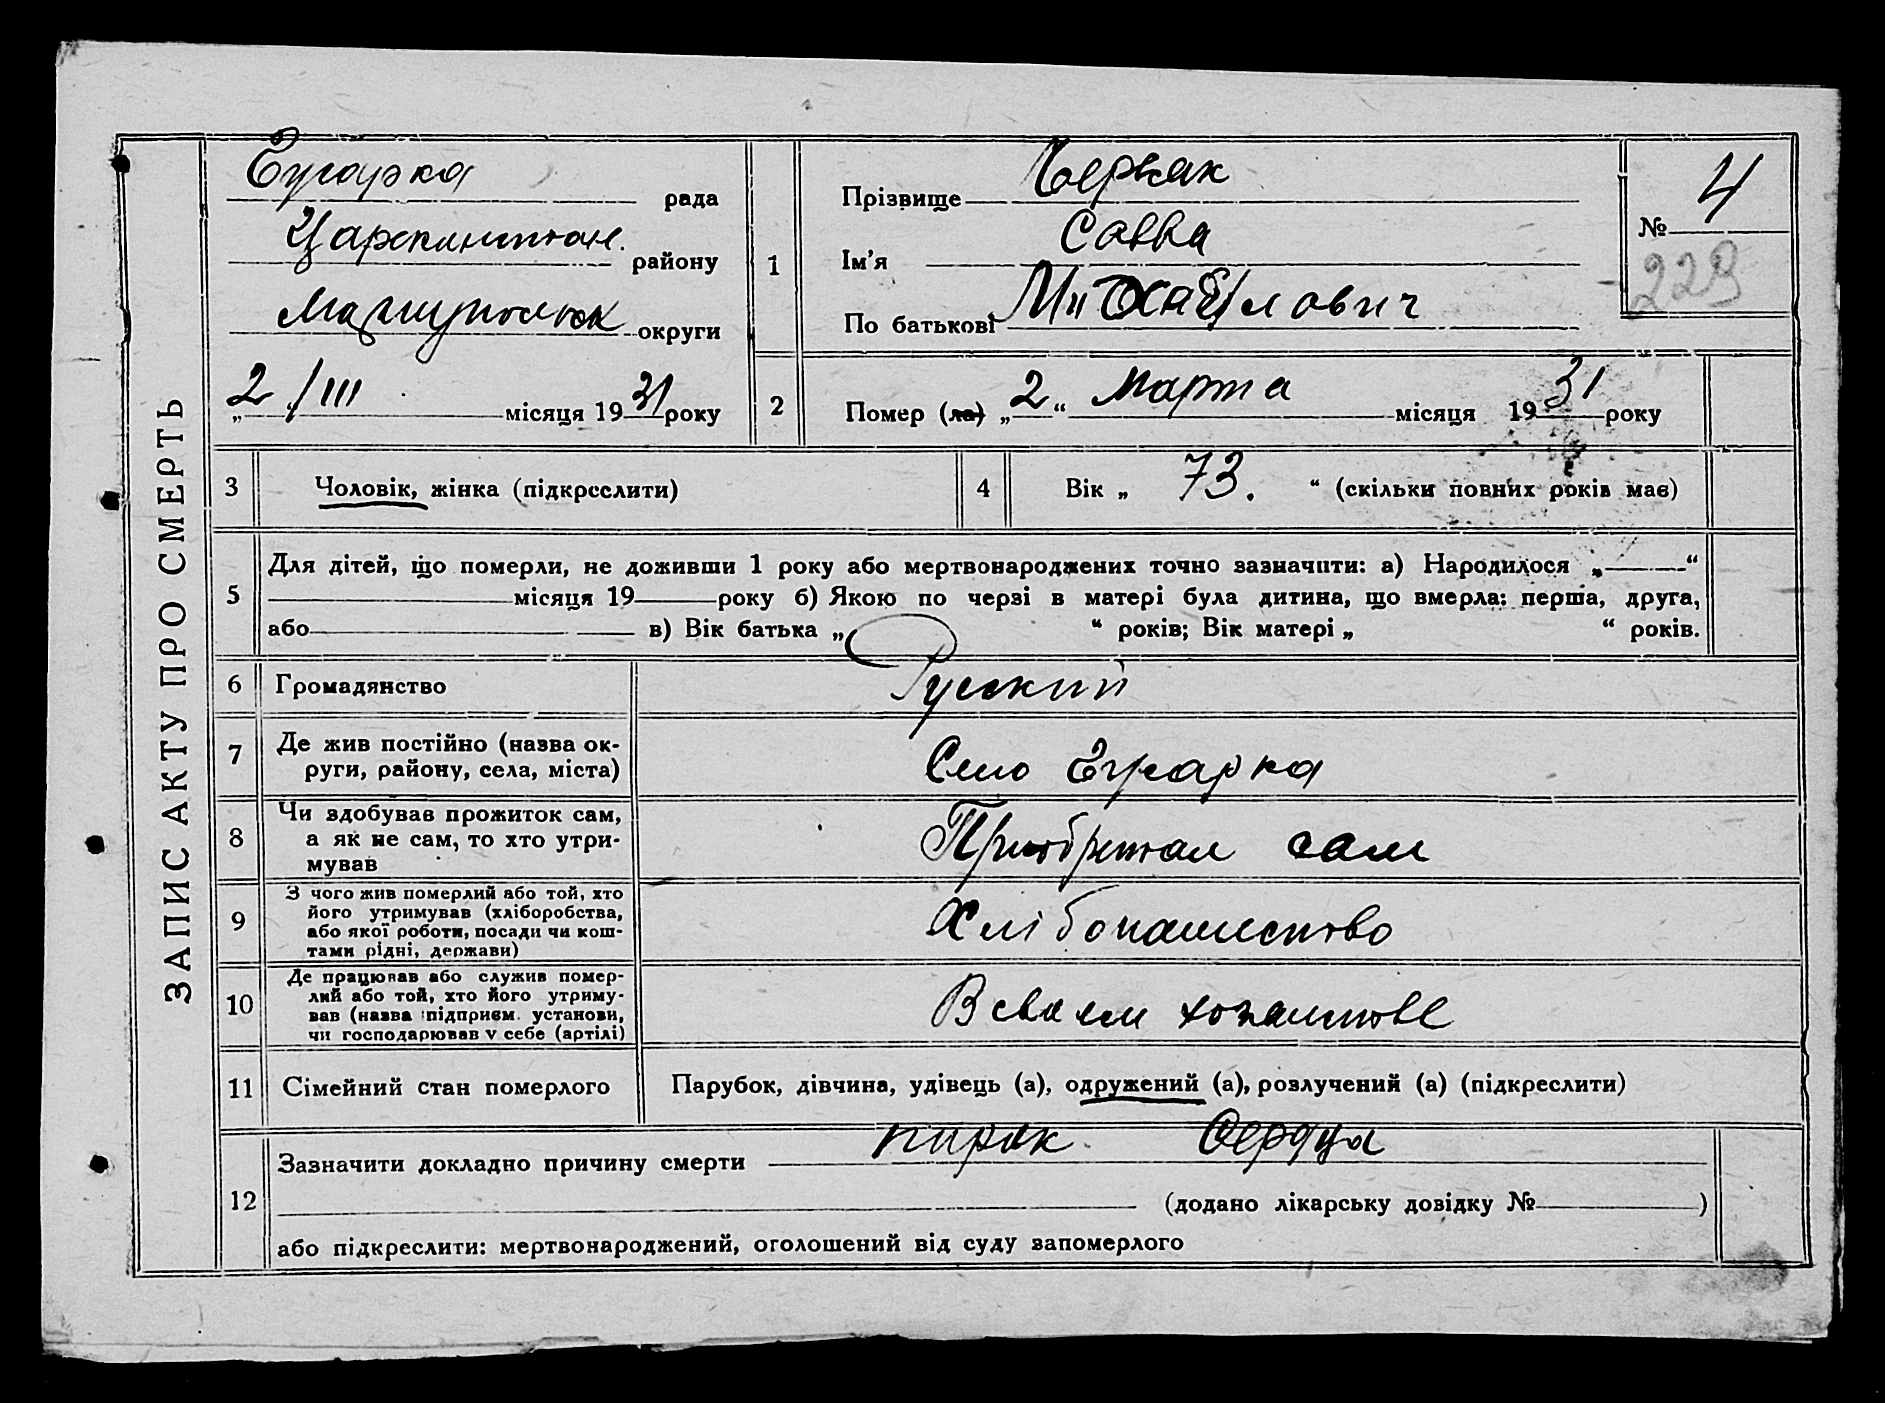 ЗАПИС АКТУ ПРО СМЕРТЬ
рада
району
округи
2 / III місяця 1931 року
1
Прізвище Червак
Ім'я Савва
По батькові
№ 4
229
2
Помер (ла) „2“ марта місяця 1931 року
3
Чоловік, жінка (підкреслити)
4
Вік „ 73. “ (скільки повних років має)
5
Для дітей, що померли, не доживши 1 року або мертвонароджених точно зазначити: а) Народилося „ “
місяця 19 року б) Якою по черзі в матері була дитина, що вмерла: перша, друга,
або в) Вік батька „ “ років; Вік матері „ “ років.
6
Громадянство
Русский
7
Де жив постійно (назва ок-
руги, району, села, міста)
Село
8
Чи здобував прожиток сам,
а як не сам, то хто утри-
мував
Приобретал сам
9
З чого жив померлий або той, хто
його утримував (хліборобства,
або якої роботи, посади чи кош-
тами рідні, держави)
Хлібопашество
10
Де працював або служив помер-
лий або той, хто його утриму-
вав (назва підприєм. установи,
чи господарював у себе (артілі)
В своем хозаистве
11
Сімейний стан померлого
Парубок, дівчина, удівець (а), одружений (а), розлучений (а) (підкреслити)
12
Зазначити докладно причину смерти Сердца
(додано лікарську довідку № )
або підкреслити: мертвонароджений, оголошений від суду запомерлого